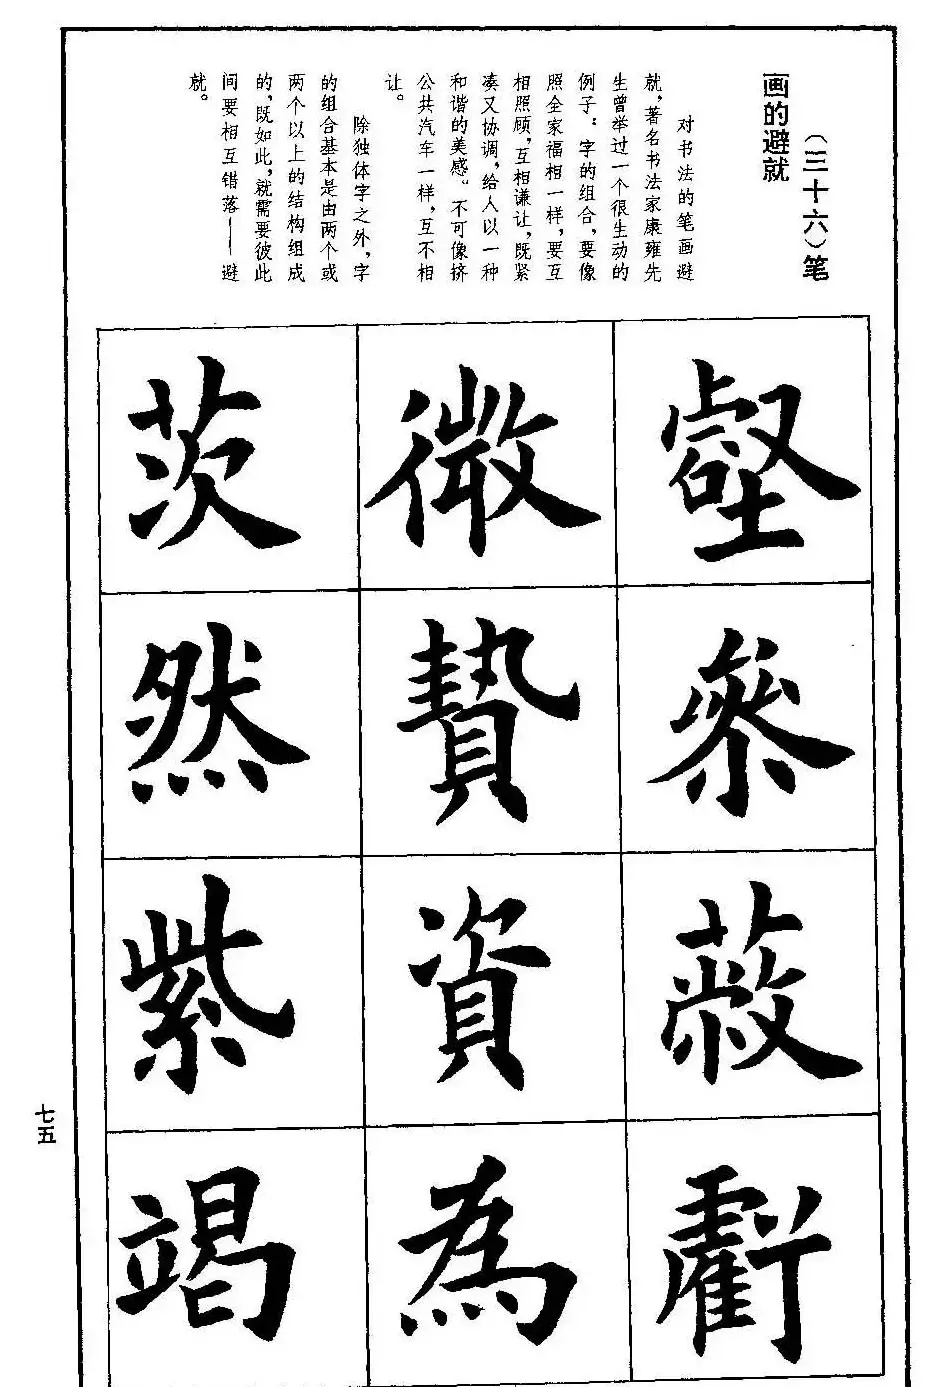 （三十六）笔
画的避就
对书法的笔画避
就，著名书法家康雍先
生曾举过一个很生动的
例子：字的组合，要像
照全家福相一样，要互
相照顾，互相谦让，既紧
凑又协调，给人以一种
和谐的美感。不可像挤
公共汽车一样，互不相
让。
除独体字之外，字
的组合基本是由两个或
两个以上的结构组成
的，既如此，就需要彼此
间要相互错落——避
就。
壑
參
蔽
虧
微
贄
資
為
茨
然
紫
竭
七五